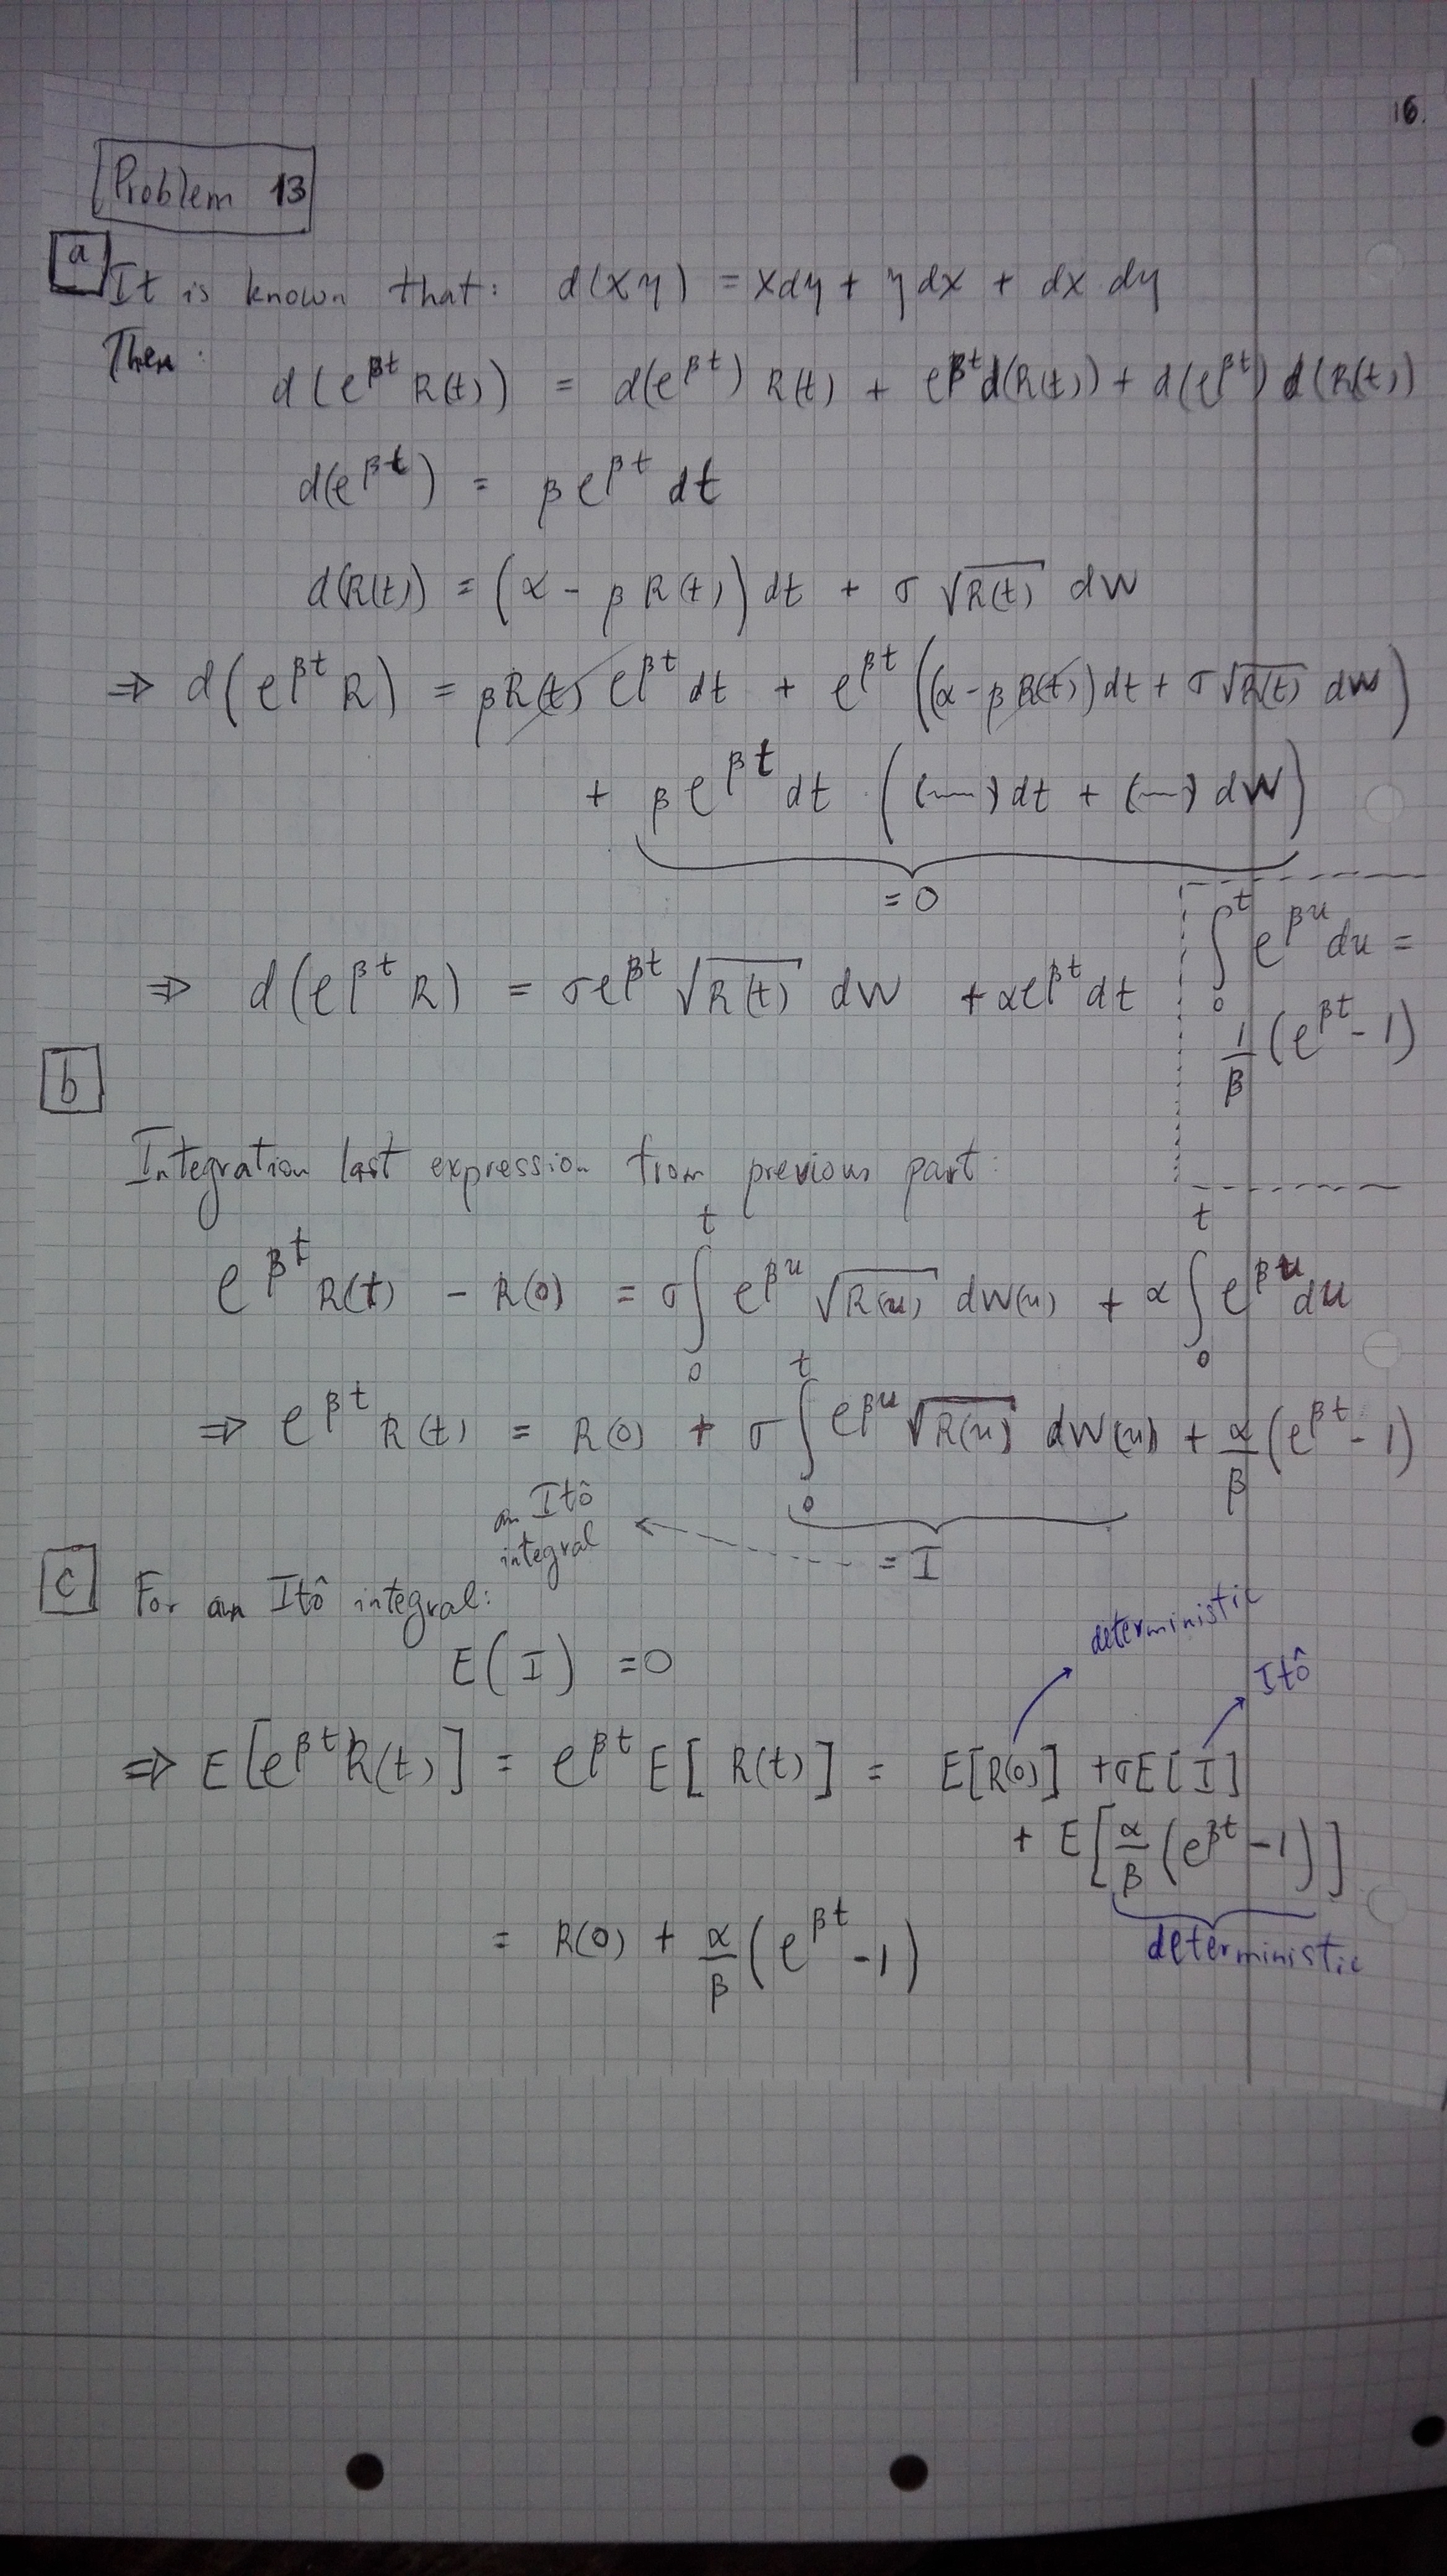 16.
Problem 13
a
It is known that: d(xy) = xdy + ydx + dx dy
Then:
d(e^{βt} R(t)) = d(e^{βt}) R(t) + e^{βt} d(R(t)) + d(e^{βt}) d(R(t))
d(e^{βt}) = β e^{βt} dt
d(R(t)) = (α - β R(t)) dt + σ √R(t) dW
⇒ d(e^{βt} R) = βR(t) e^{βt} dt + e^{βt} ((α - β R(t)) dt + σ √R(t) dW)
+ β e^{βt} dt · ((—) dt + (—) dW)
= 0
⇒ d(e^{βt} R) = σe^{βt} √R(t) dW + αe^{βt} dt
∫_0^t e^{βu} du =
1/β (e^{βt} - 1)
b
Integration last expression from previous part:
e^{βt} R(t) - R(0) = σ ∫_0^t e^{βu} √R(u) dW(u) + α ∫_0^t e^{βu} du
⇒ e^{βt} R(t) = R(0) + σ ∫_0^t e^{βu} √R(u) dW(u) + α/β (e^{βt} - 1)
an Itô
integral
= I
c
For an Itô integral:
E(I) = 0
deterministic
Itô
⇒ E[e^{βt} R(t)] = e^{βt} E[R(t)] = E[R(0)] + σE[I]
+ E[α/β (e^{βt} - 1)]
deterministic
= R(0) + α/β (e^{βt} - 1)